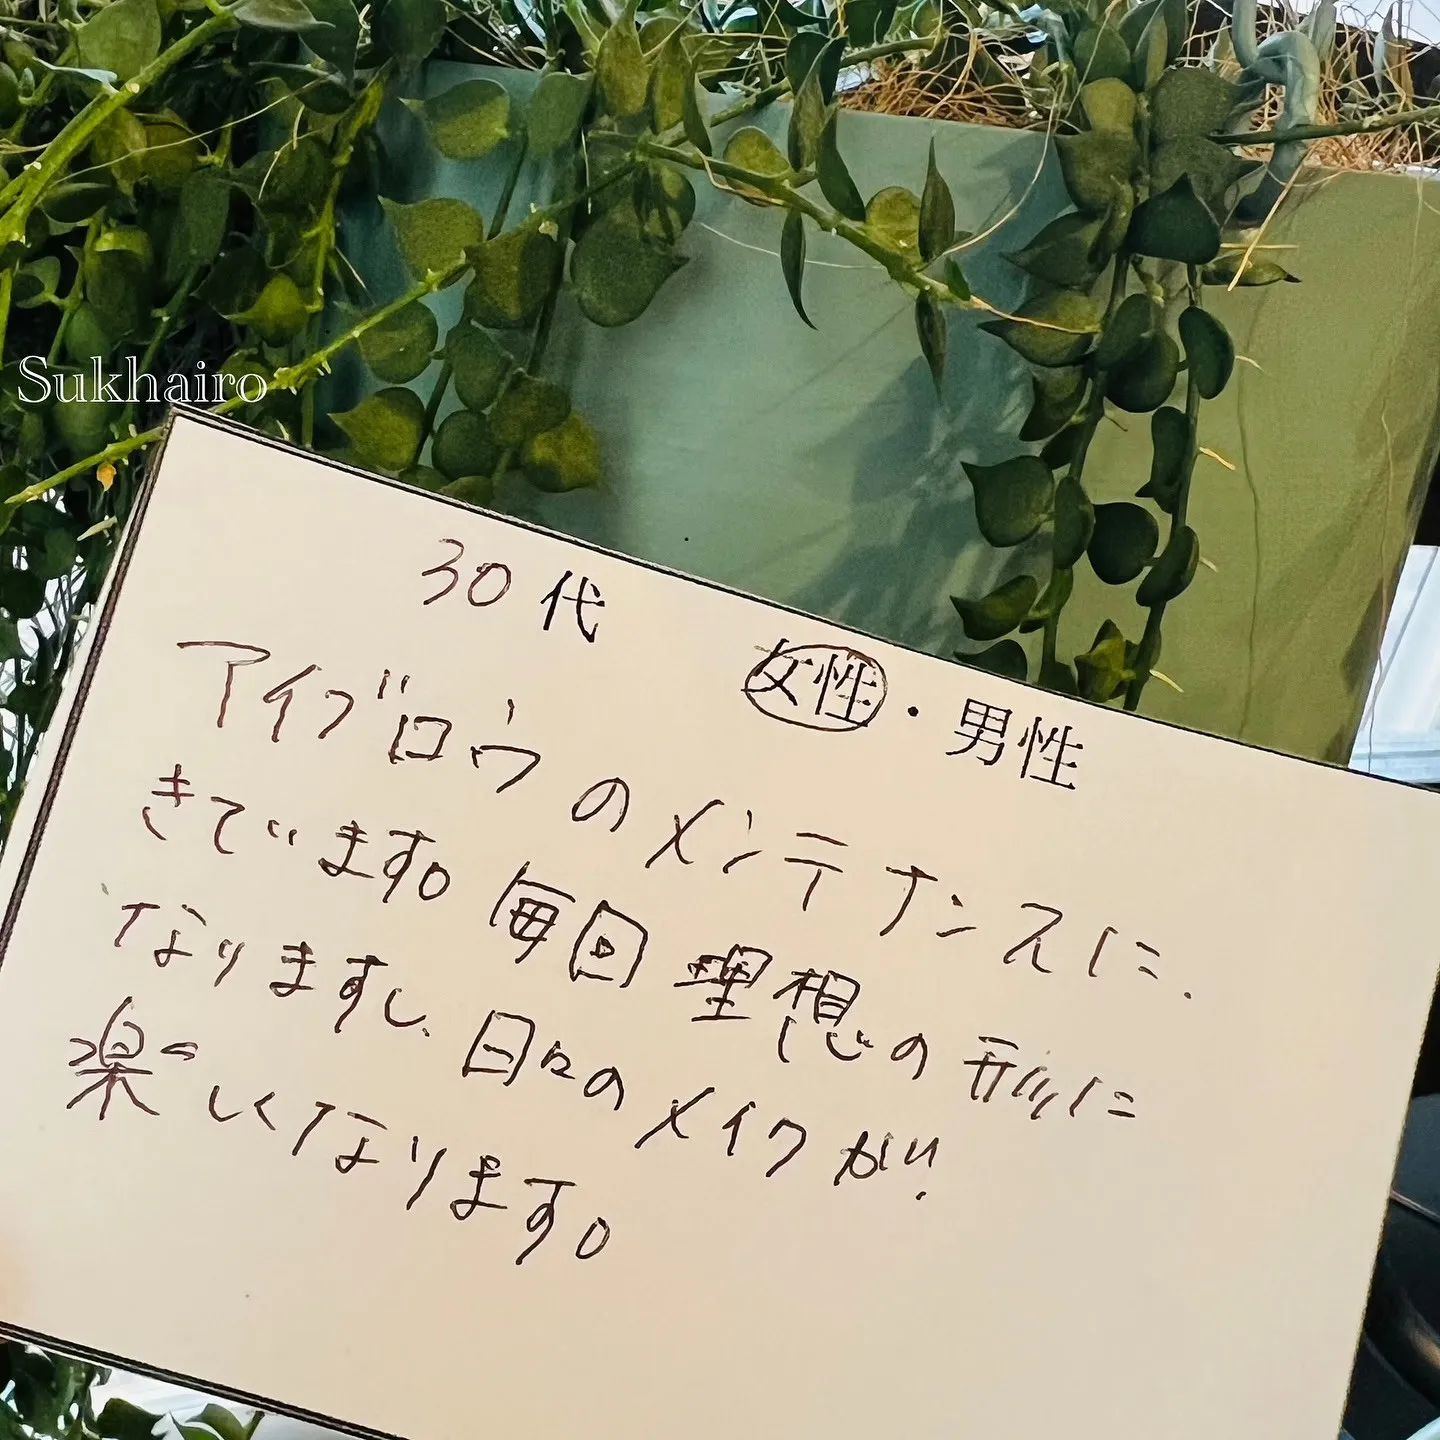 Sukhairo
30代 女性・男性
アイブロウのメンテナンスに
きています。毎回理想の形に
なりますし、日々のメイクが
楽しくなります。